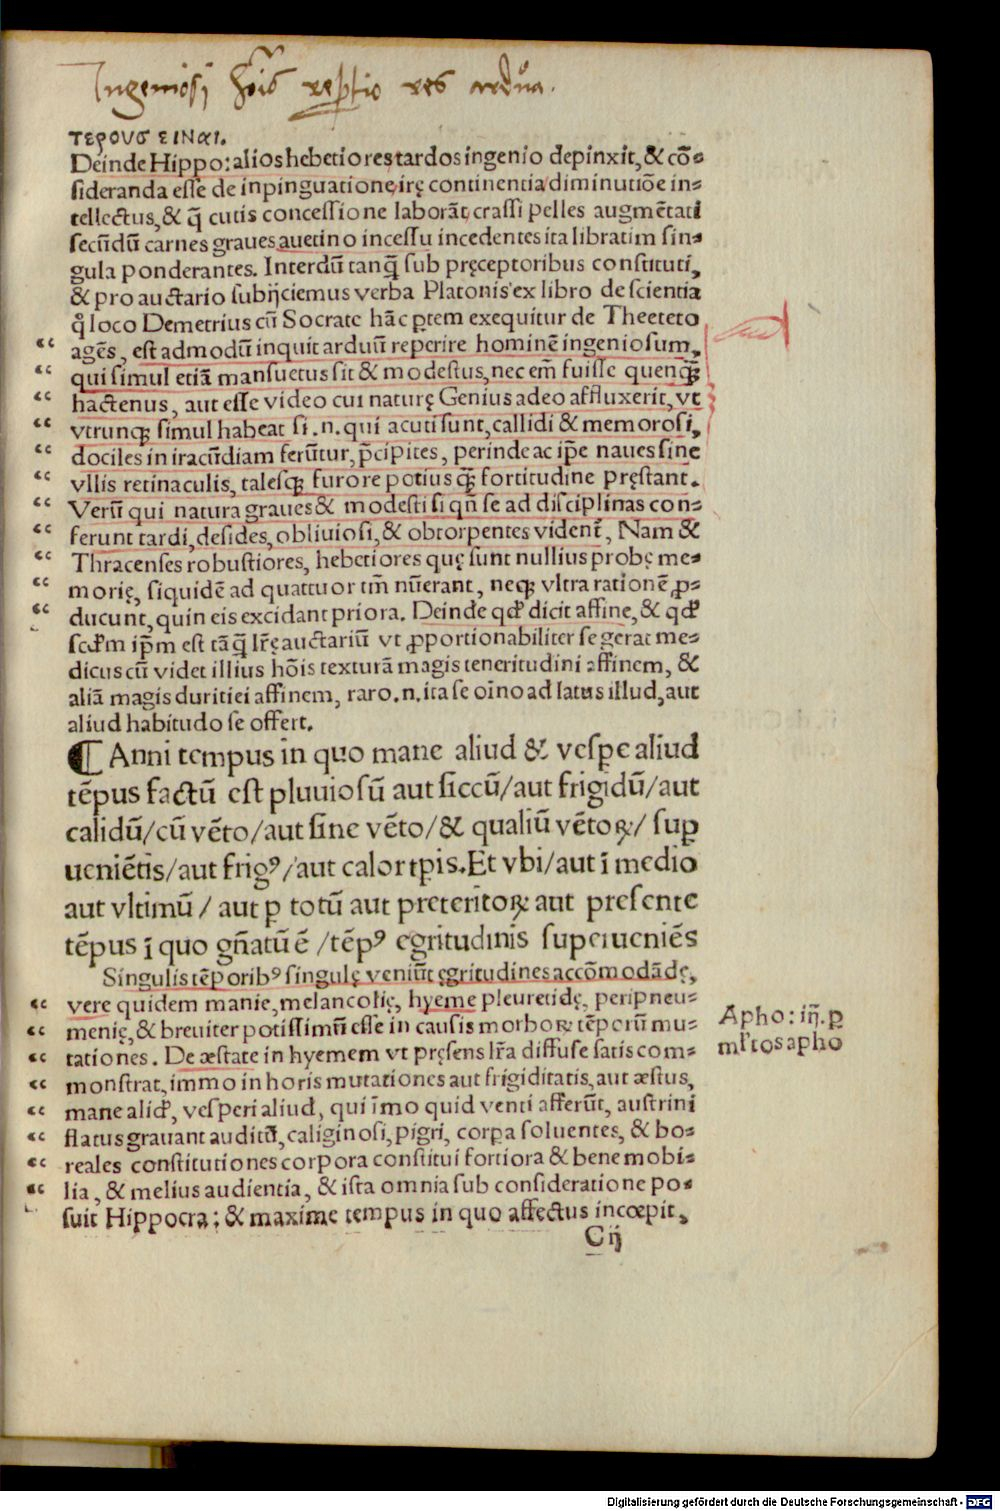 Ingeniosi hoīs reꝑtio res ardua.
τερουσ ειναι.
Deinde Hippo: alios hebetiores tardos ingenio depinxit, & cō-
sideranda esse de inpinguatione, irę continentia diminutiōe in-
tellectus, & q̄ cutis concessione laborāt, crassi pelles augmētati
secūdū carnes graues auetino incessu incedentes ita libratim sin-
gula ponderantes. Interdū tanq̄ sub pręceptoribus constituti,
& pro auctario subijciemus verba Platonis ex libro de scientia
q̊ loco Demetrius cū Socrate hāc ꝑtem exequitur de Theeteto
agēs, est admodū inquit arduū reperire hominē ingeniosum,
qui simul etiā mansuetus sit & modestus, nec em̄ fuisse quenqꝫ
hactenus, aut esse video cui naturę Genius adeo affluxerit, vt
vtrunqꝫ simul habeat si .n. qui acuti sunt, callidi & memorosi,
dociles in iracūdiam ferūtur, p̄cipites, perinde ac ip̄e naues sine
vllis retinaculis, talesqꝫ furore potius qꝫ fortitudine pręstant.
Verū qui natura graues & modesti si qn̄ se ad disciplinas con-
ferunt tardi, desides, obliuiosi, & obtorpentes vident̄, Nam &
Thracenses robustiores, hebetiores quę sunt nullius probę me-
morię, siquidē ad quattuor tm̄ nūerant, neqꝫ vltra rationē ꝓ-
ducunt, quin eis excidant priora. Deinde qđ dicit affine, & qđ
scđm ip̄m est tāq̄ lr̄ę auctariū vt ꝓportionabiliter se gerat me-
dicus cū videt illius hōis texturā magis teneritudini affinem, &
aliā magis duritiei affinem, raro .n. ita se oīno ad latus illud, aut
aliud habitudo se offert.
¶ Anni tempus in quo mane aliud & vespe aliud
tēpus factū est pluuiosū aut siccū/aut frigidū/aut
calidū/cū vēto/aut sine vēto/& qualiū vētoꝝ/ suꝑ
ueniētis/aut frigꝰ/aut calor tꝑis. Et vbi/aut ī medio
aut vltimū / aut ꝑ totū aut preteritoꝝ aut presente
tēpus ī quo gn̄atū ē /tēpꝰ egritudinis superueniēs
Singulis tēporibꝰ singulę veniūt ęgritudines accōmodādę,
vere quidem manie, melancolię, hyeme pleuretidę, peripneu-
menię, & breuiter potissimū esse in causis morboꝝ tēporū mu-
tationes. De æstate in hyemem vt pręsens lr̄a diffuse satis com-
monstrat, immo in horis mutationes aut frigiditatis, aut æstus,
mane aliđ, vesperi aliud, qui īmo quid venti afferūt, austrini
flatus grauant auditū, caliginosi, pigri, corpa soluentes, & bo-
reales constitutiones corpora constitui fortiora & bene mobi-
lia, & melius audientia, & ista omnia sub consideratione po-
suit Hippocra; & maxime tempus in quo affectus incœpit,
C ij
Apho: iij. ꝑ
ml̄tos apho
Digitalisierung gefördert durch die Deutsche Forschungsgemeinschaft - DFG